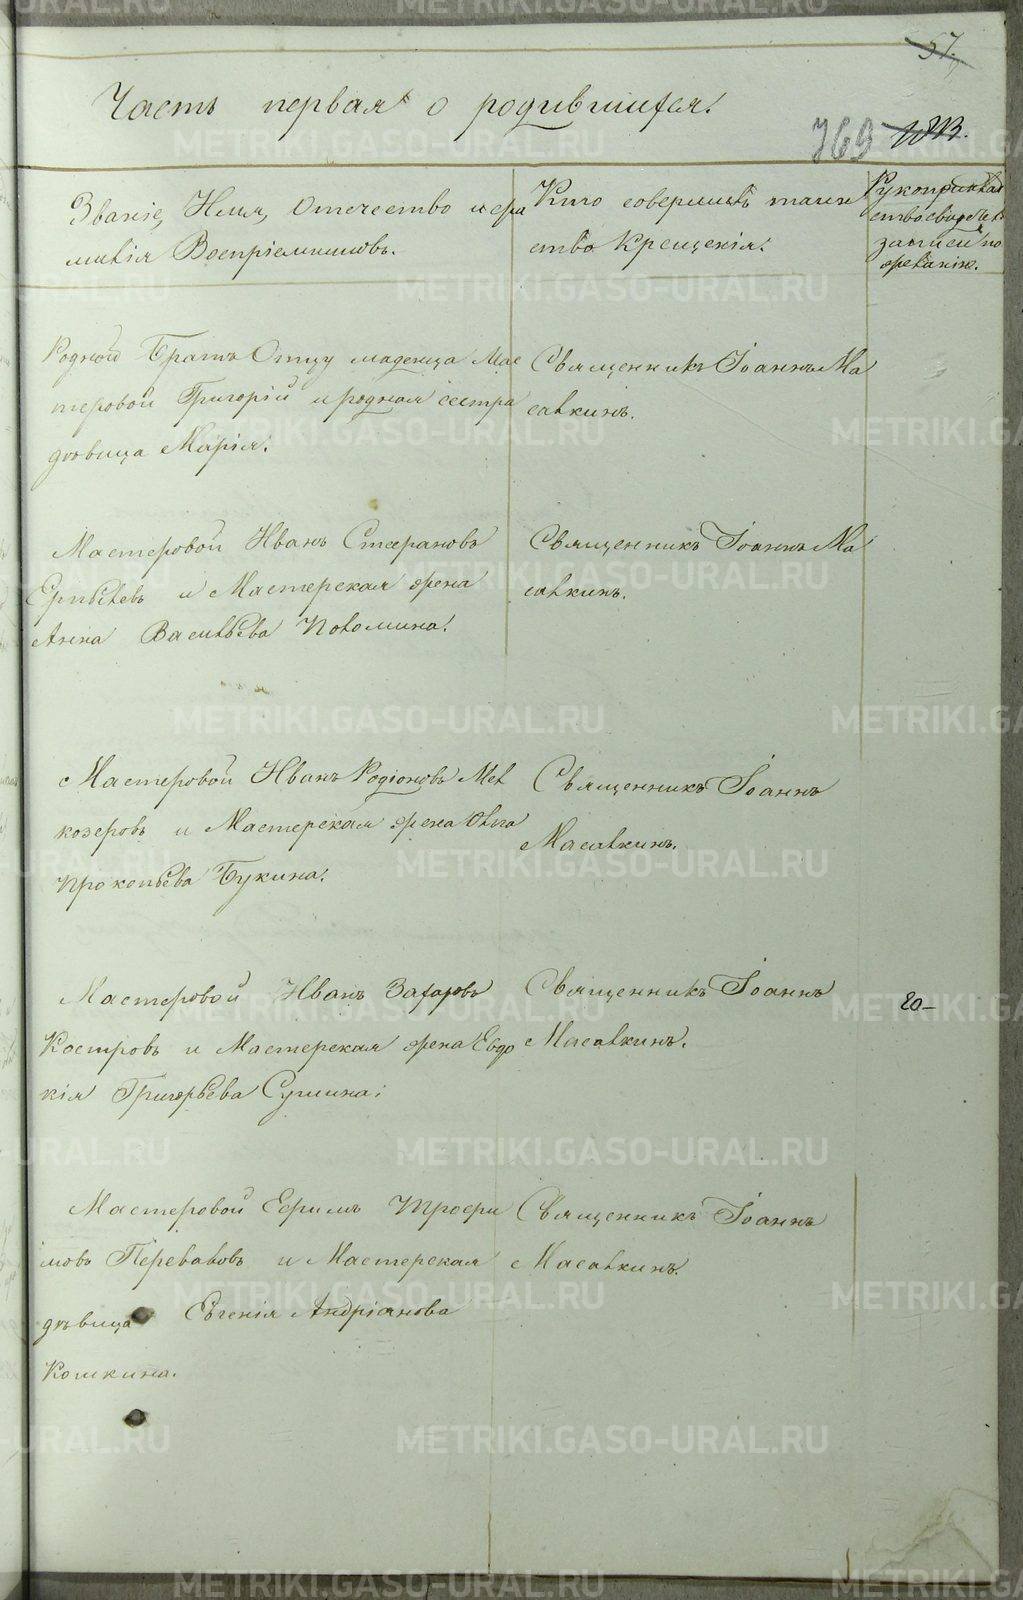 57.
Часть первая о родившихся.
769
Званіе, Имя, Отчество и фа
милія Воспріемниковъ.
Кто совершалъ таин
ство Крещенія.
Рукоприклад
ство свидѣтел.
записи по
желанію.
Родной Братъ Отцу младенца Мас
теровой Григорій и родная сестра
дѣвица Марія.
Священникъ Іоаннъ Ма
салкинъ.
Мастеровой Иванъ Стефановъ
и Мастерская жена
Анна Васильева Потомина.
Священникъ Іоаннъ Ма
салкинъ.
Мастеровой Иванъ Родіоновъ Мел
козеровъ и Мастерская жена Ольга
Прокопьева Букина.
Священникъ Іоаннъ
Масалкинъ.
Мастеровой Иванъ Захаровъ
Костровъ и Мастерская жена Евдо
кія Григорьева Сушина.
Священникъ Іоаннъ
Масалкинъ.
20
Мастеровой Ефимъ Трофи
мовъ Переваловъ и Мастерская
дѣвица Евгенія Андріанова
Кошкина.
Священникъ Іоаннъ
Масалкинъ.
METRIKI.GASO-URAL.RU